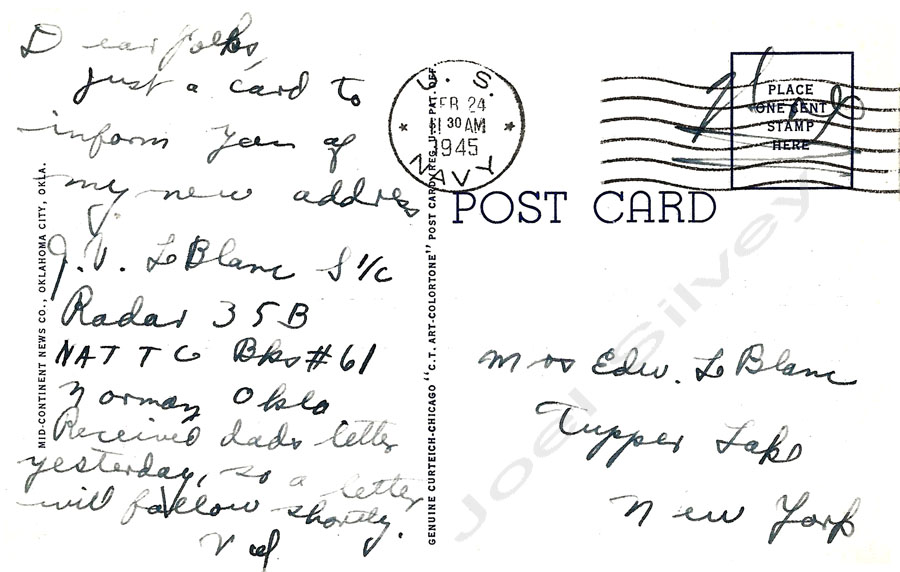 Dear folks,
Just a card to
inform you of
my new address
J.V. LeBlanc S 1/c
Radar 35B
NATTC Bks #61
Norman Okla
Received dads letter
yesterday, so a letter
will follow shortly.
Val
MID-CONTINENT NEWS CO., OKLAHOMA CITY, OKLA.
GENUINE CURTEICH-CHICAGO "C.T. ART-COLORTONE" POST CARD (REG. U.S. PAT. OFF.
U. S.
FEB 24
11 30 AM
1945
NAVY
PLACE
ONE CENT
STAMP
HERE
Free
POST CARD
Mrs Edw. LeBlanc
Tupper Lake
New York
Joel Silvey